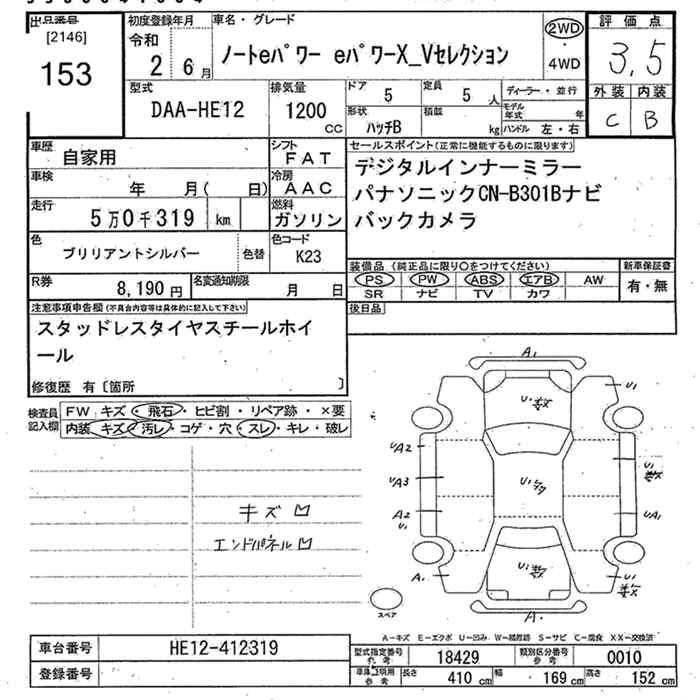 出品番号
[2146]
153
初度登録年月
令和
2 6月
車名・グレード
ノートeパワー eパワーX_Vセレクション
2WD
・
4WD
評価点
3.5
外装 内装
C B
型式
DAA-HE12
排気量
1200
CC
ドア
5
定員
5 人
形状
ハッチB
積載
kg
ディーラー・並行
モデル年式 年
ハンドル 左・右
車歴
自家用
シフト
FAT
車検
年 月( 日)
冷房
AAC
走行
5万0千319 km
燃料
ガソリン
色
ブリリアントシルバー
色替
色コード
K23
R券
8,190円
名変通知期限
月 日
セールスポイント(正常に機能するものに限ります)
デジタルインナーミラー
パナソニックCN-B301Bナビ
バックカメラ
装備品(純正品に限り○をつけてください)
PS PW ABS エアB AW
SR ナビ TV カワ
新車保証書
有・無
後日品
注意事項申告欄(不具合内容等は具体的に記入して下さい)
スタッドレスタイヤスチールホイ
ール
修復歴 有〔箇所 〕
検査員
記入欄
FW キズ・飛石・ヒビ割・リペア跡・×要
内装 キズ・汚レ・コゲ・穴・スレ・キレ・破レ
キズ凹
エンドパネル凹
A1
U1
UA2
A3
A2
U1
UA1
A1
U1
A1
スペア
A-キズ E-エクボ U-凹み W-補修跡 S-サビ C-腐食 XX-交換済
車台番号
HE12-412319
登録番号
型式指定番号
参考
18429
類別区分番号
参考
0010
車庫証明用
参考
長さ
410 cm
幅
169 cm
高さ
152 cm